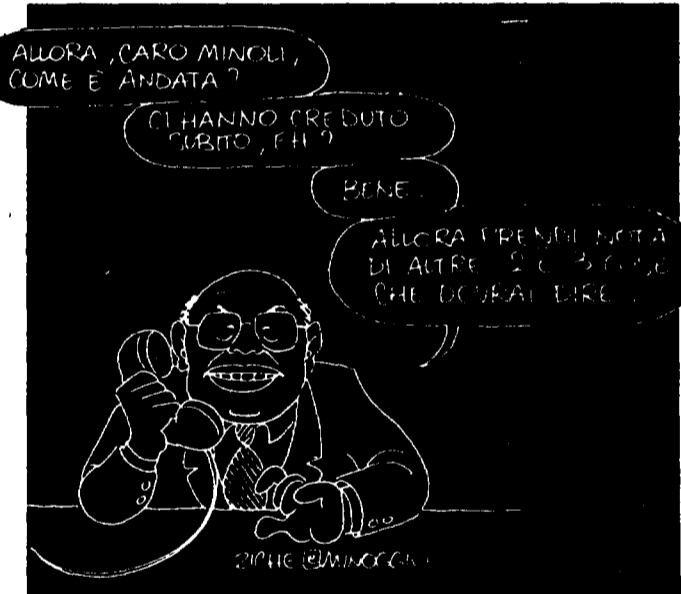 ALLORA, CARO MINOLI,
COME È ANDATA?
CI HANNO CREDUTO
SUBITO, EH?
BENE..
ALLORA PRENDI NOTA
DI ALTRE 2 O 3 COSE
CHE DOVRAI DIRE..